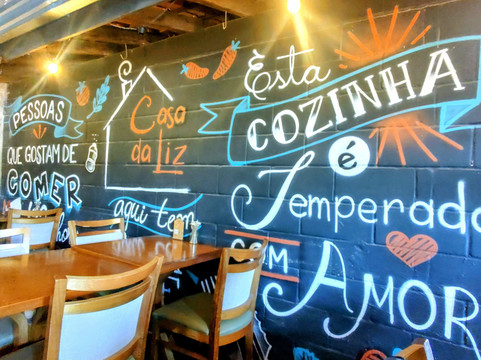 PESSOAS
QUE GOSTAM DE
COMER
Casa
da Liz
aqui tem
Èsta
COZINHA
é
Temperada
COM
AMOR